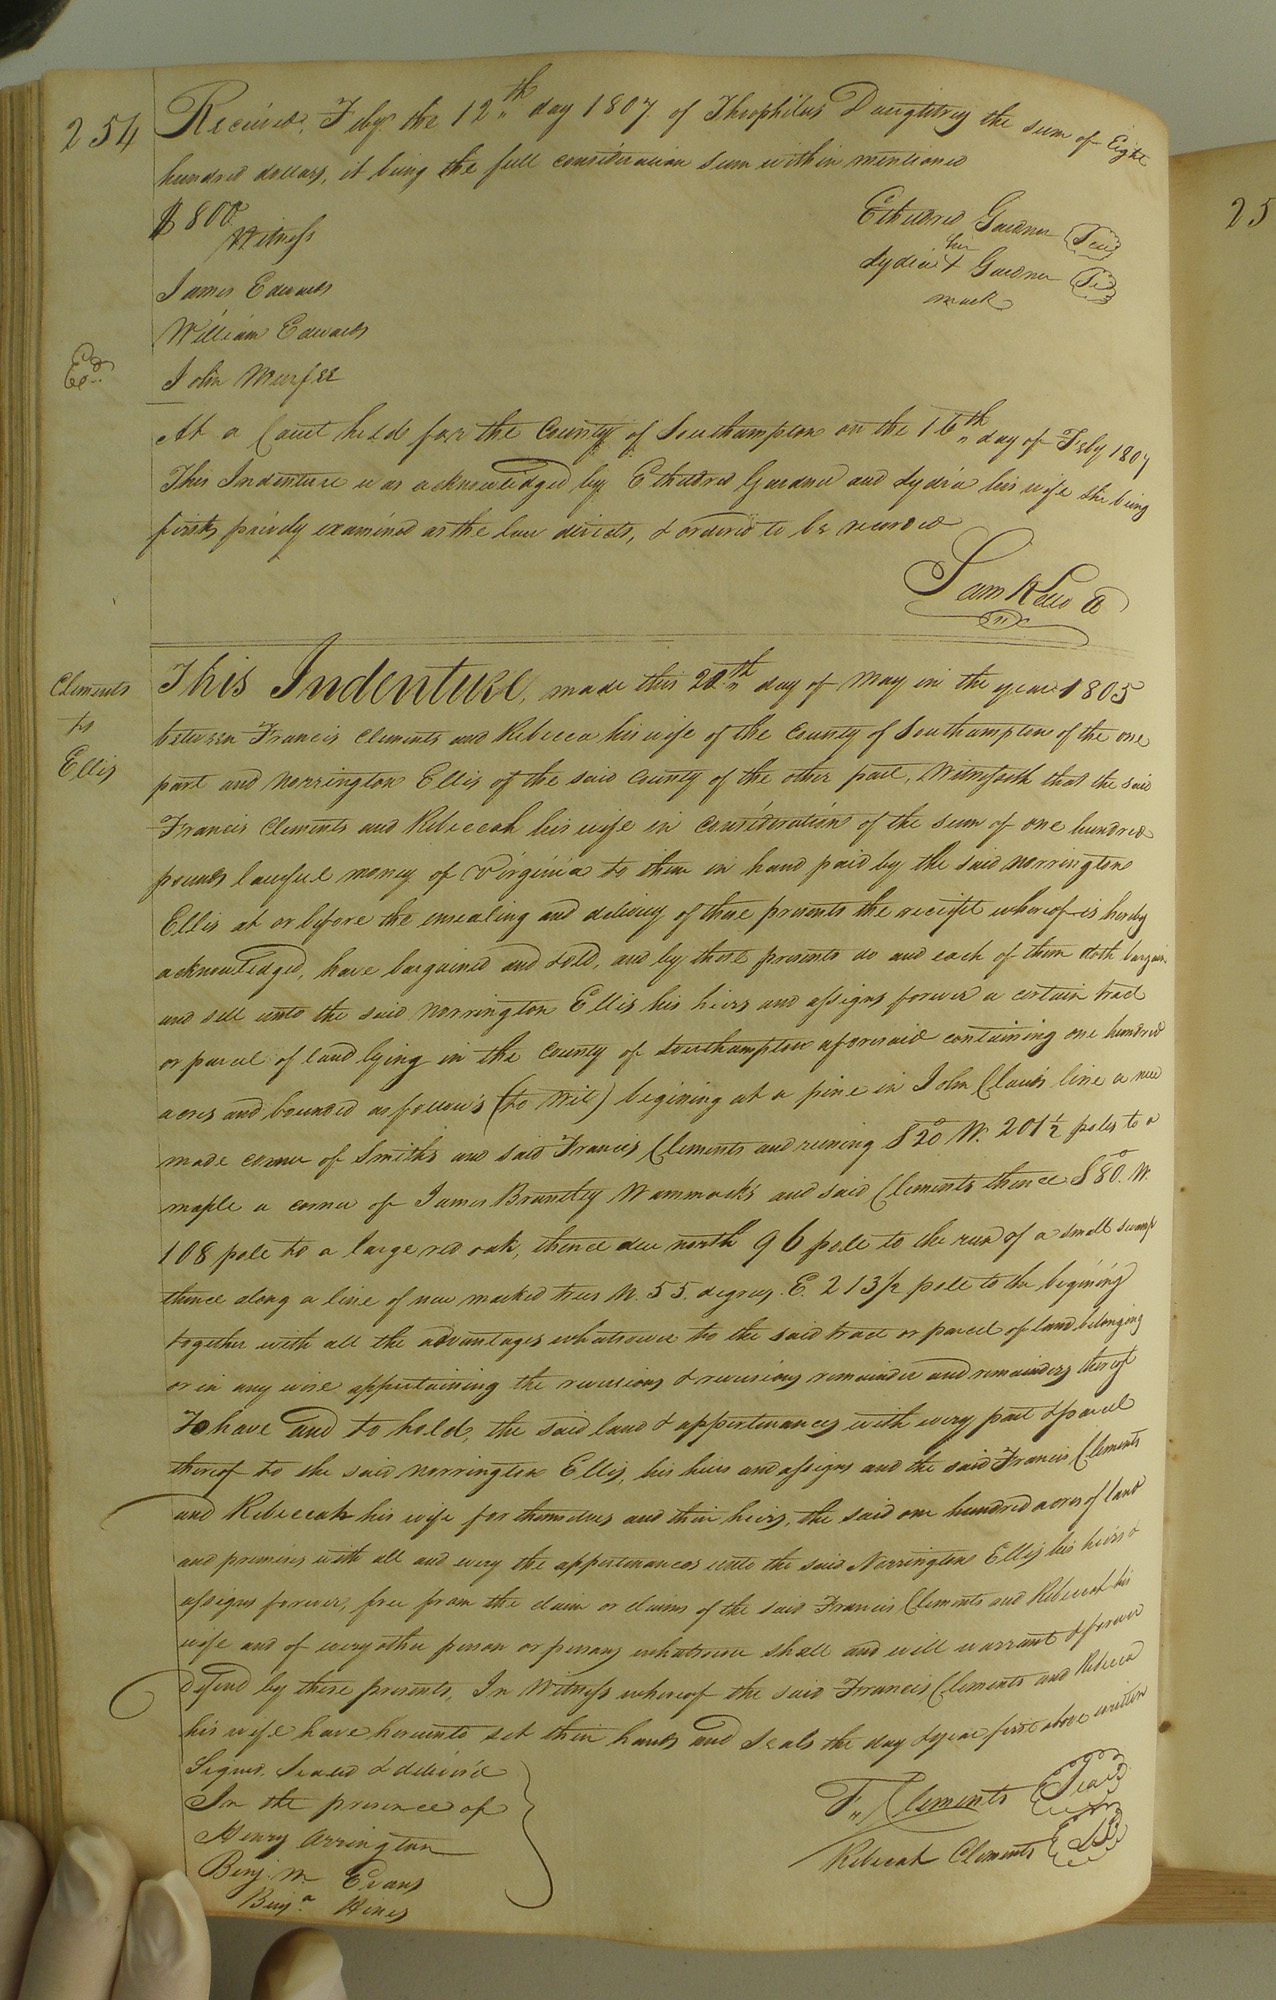 254
Received, Feby. the 12th day 1807 of Theophilus Daughtrey the sum of Eight
hundred dollars, it being the full consideration sum within mentioned
$800
Witness
Etheldred Gardner Seal
her
Lydia + Gardner
mark
James Edwards
William Edwards
John Murfee
Exd.
At a Court held for the County of Southampton on the 16th day of Feby 1807
This Indenture was acknowledged by Etheldred Gardner and Lydia his wife she being
firstly privily examined as the law directs, & ordered to be recorded
Clements
to
Ellis
This Indenture, made this 20th day of May in the year 1805
between Francis Clements and Rebecca his wife of the County of Southampton of the one
part and Norrington Ellis of the said County of the other part, Witnesseth that the said
Francis Clements and Rebeccah his wife in consideration of the sum of one hundred
pounds lawful money of Virginia to them in hand paid by the said Norrington
Ellis at or before the ensealing and delivery of these presents the receipt whereof is hereby
acknowledged, have bargained and sold, and by these presents do and each of them doth bargain
and sell unto the said Norrington Ellis his heirs and assigns forever a certain tract
or parcel of land lying in the County of Southampton aforesaid containing one hundred
acres and bounded as follows (to Wit) begining at a pine in John Claud's line a new
made corner of Smiths and said Francis Clements and runing S 20° W. 201½ poles to a
maple a corner of James Brantley Wammocks and said Clements thence S 80° W.
108 pole to a large red oak, thence due north 96 pole to the run of a small swamp
thence along a line of new marked trees N. 55. degrees. E. 213½ pole to the begining
together with all the advantages whatsoever to the said tract or parcel of land belonging
or in any wise appertaining the reversions & reversions remainder and remainders thereof
To have and to hold, the said land & appertenances with every part & parcel
thereof to the said Norrington Ellis, his heirs and assigns and the said Francis Clements
and Rebeccah his wife for themselves and their heirs, the said one hundred acres of land
and premises with all and every the appertenances unto the said Norrington Ellis his heirs &
assigns forever, free from the claim or claims of the said Francis Clements and Rebeccah his
wife and of every other person or persons whatsoever shall and will warrant & forever
defend by these presents, In Witness whereof the said Francis Clements and Rebecca
his wife have hereunto set their hands and seals the day & year first above written
Signed. Sealed & deliver'd
In the presence of
Henry Arrington
Benj. W. Evans
Benja. Hines
F. Clements Seal
Rebecah Clements
25